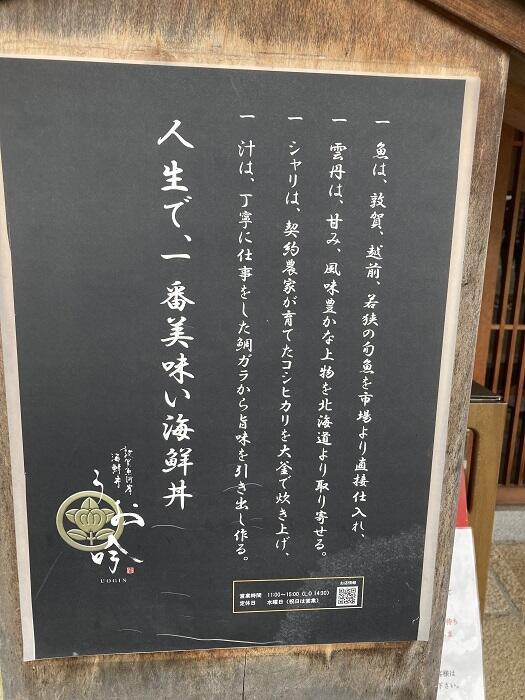 一 魚は、敦賀、越前、若狭の旬魚を市場より直接仕入れ、
一 雲丹は、甘み、風味豊かな上物を北海道より取り寄せる。
一 シャリは、契約農家が育てたコシヒカリを大釜で炊き上げ、
一 汁は、丁寧に仕事をした鯛ガラから旨味を引き出し作る。
人生で、一番美味い海鮮丼
敦賀魚河岸
海鮮丼
うお吟
UOGIN
営業時間 11:00〜15:00 (L.O 14:30)
定休日 水曜日(祝日は営業)
お店情報